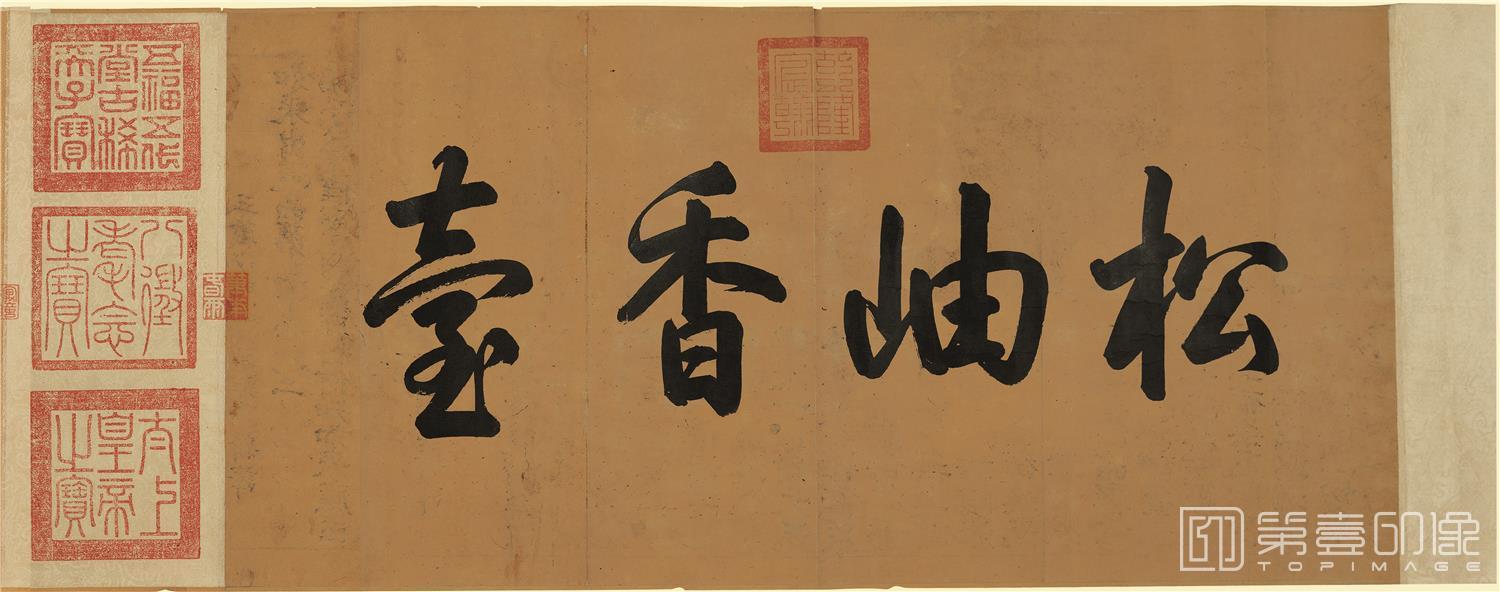 乾隆宸翰
松岫香臺
五福五代堂古稀天子寶
八徵耄念之寶
太上皇帝之寶
第壹印像
TOPIMAGE